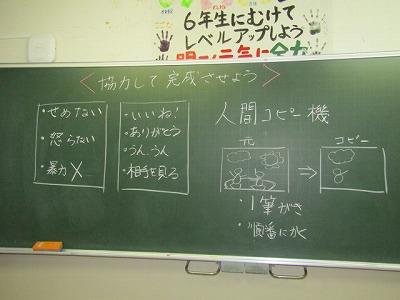 6年生にむけて
レベルアップしよう
明るく元気に全力
＜協力して完成させよう＞
・せめない
・怒らない
・暴力×
・いいね!
・ありがとう
・うん、うん
・相手を見る
人間コピー機
元
コピー
・1筆がき
・順番に